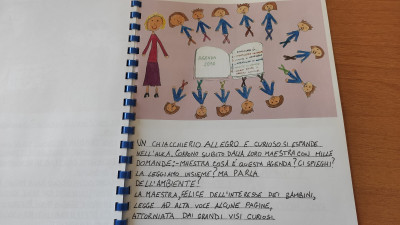 AGENDA
UN CHIACCHIERIO ALLEGRO E CURIOSO SI ESPANDE
NELL'AULA. CORRONO SUBITO DALLA LORO MAESTRA CON MILLE
DOMANDE:-MAESTRA COSA È QUESTA AGENDA? CI SPIEGHI?
LA LEGGIAMO INSIEME? MA PARLA
DELL'AMBIENTE!
LA MAESTRA, FELICE DELL'INTERESSE DEI BAMBINI,
LEGGE AD ALTA VOCE ALCUNE PAGINE,
ATTORNIATA DAI GRANDI VISI CURIOSI.